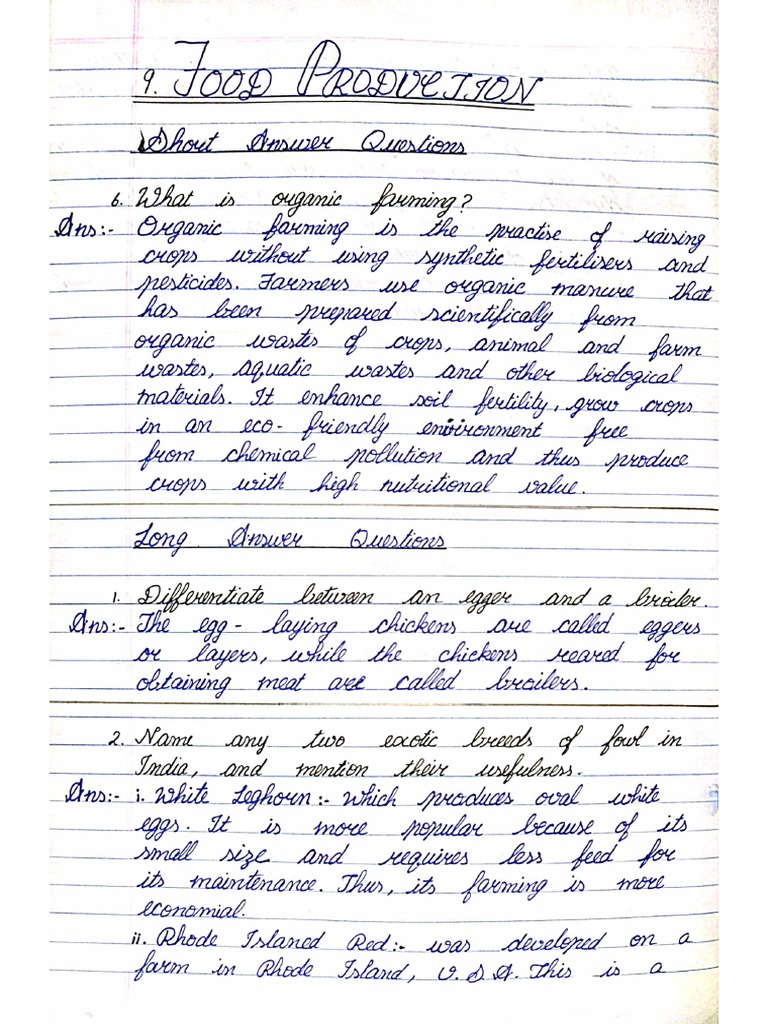 9. FOOD PRODUCTION
Short Answer Questions
6. What is organic farming?
Ans:- Organic farming is the practise of raising
crops without using synthetic fertilisers and
pesticides. Farmers use organic manure that
has been prepared scientifically from
organic wastes of crops, animal and farm
wastes, aquatic wastes and other biological
materials. It enhance soil fertility, grow crops
in an eco-friendly environment free
from chemical pollution and thus produce
crops with high nutritional value.
Long Answer Questions
1. Differentiate between an egger and a broiler.
Ans:- The egg-laying chickens are called eggers
or layers, while the chickens reared for
obtaining meat are called broilers.
2. Name any two exotic breeds of fowl in
India, and mention their usefulness.
Ans:- i. White Leghorn:- which produces oval white
eggs. It is more popular because of its
small size and requires less feed for
its maintenance. Thus, its farming is more
economial.
ii. Rhode Islaned Red:- was developed on a
farm in Rhode Island, U.S.A. This is a